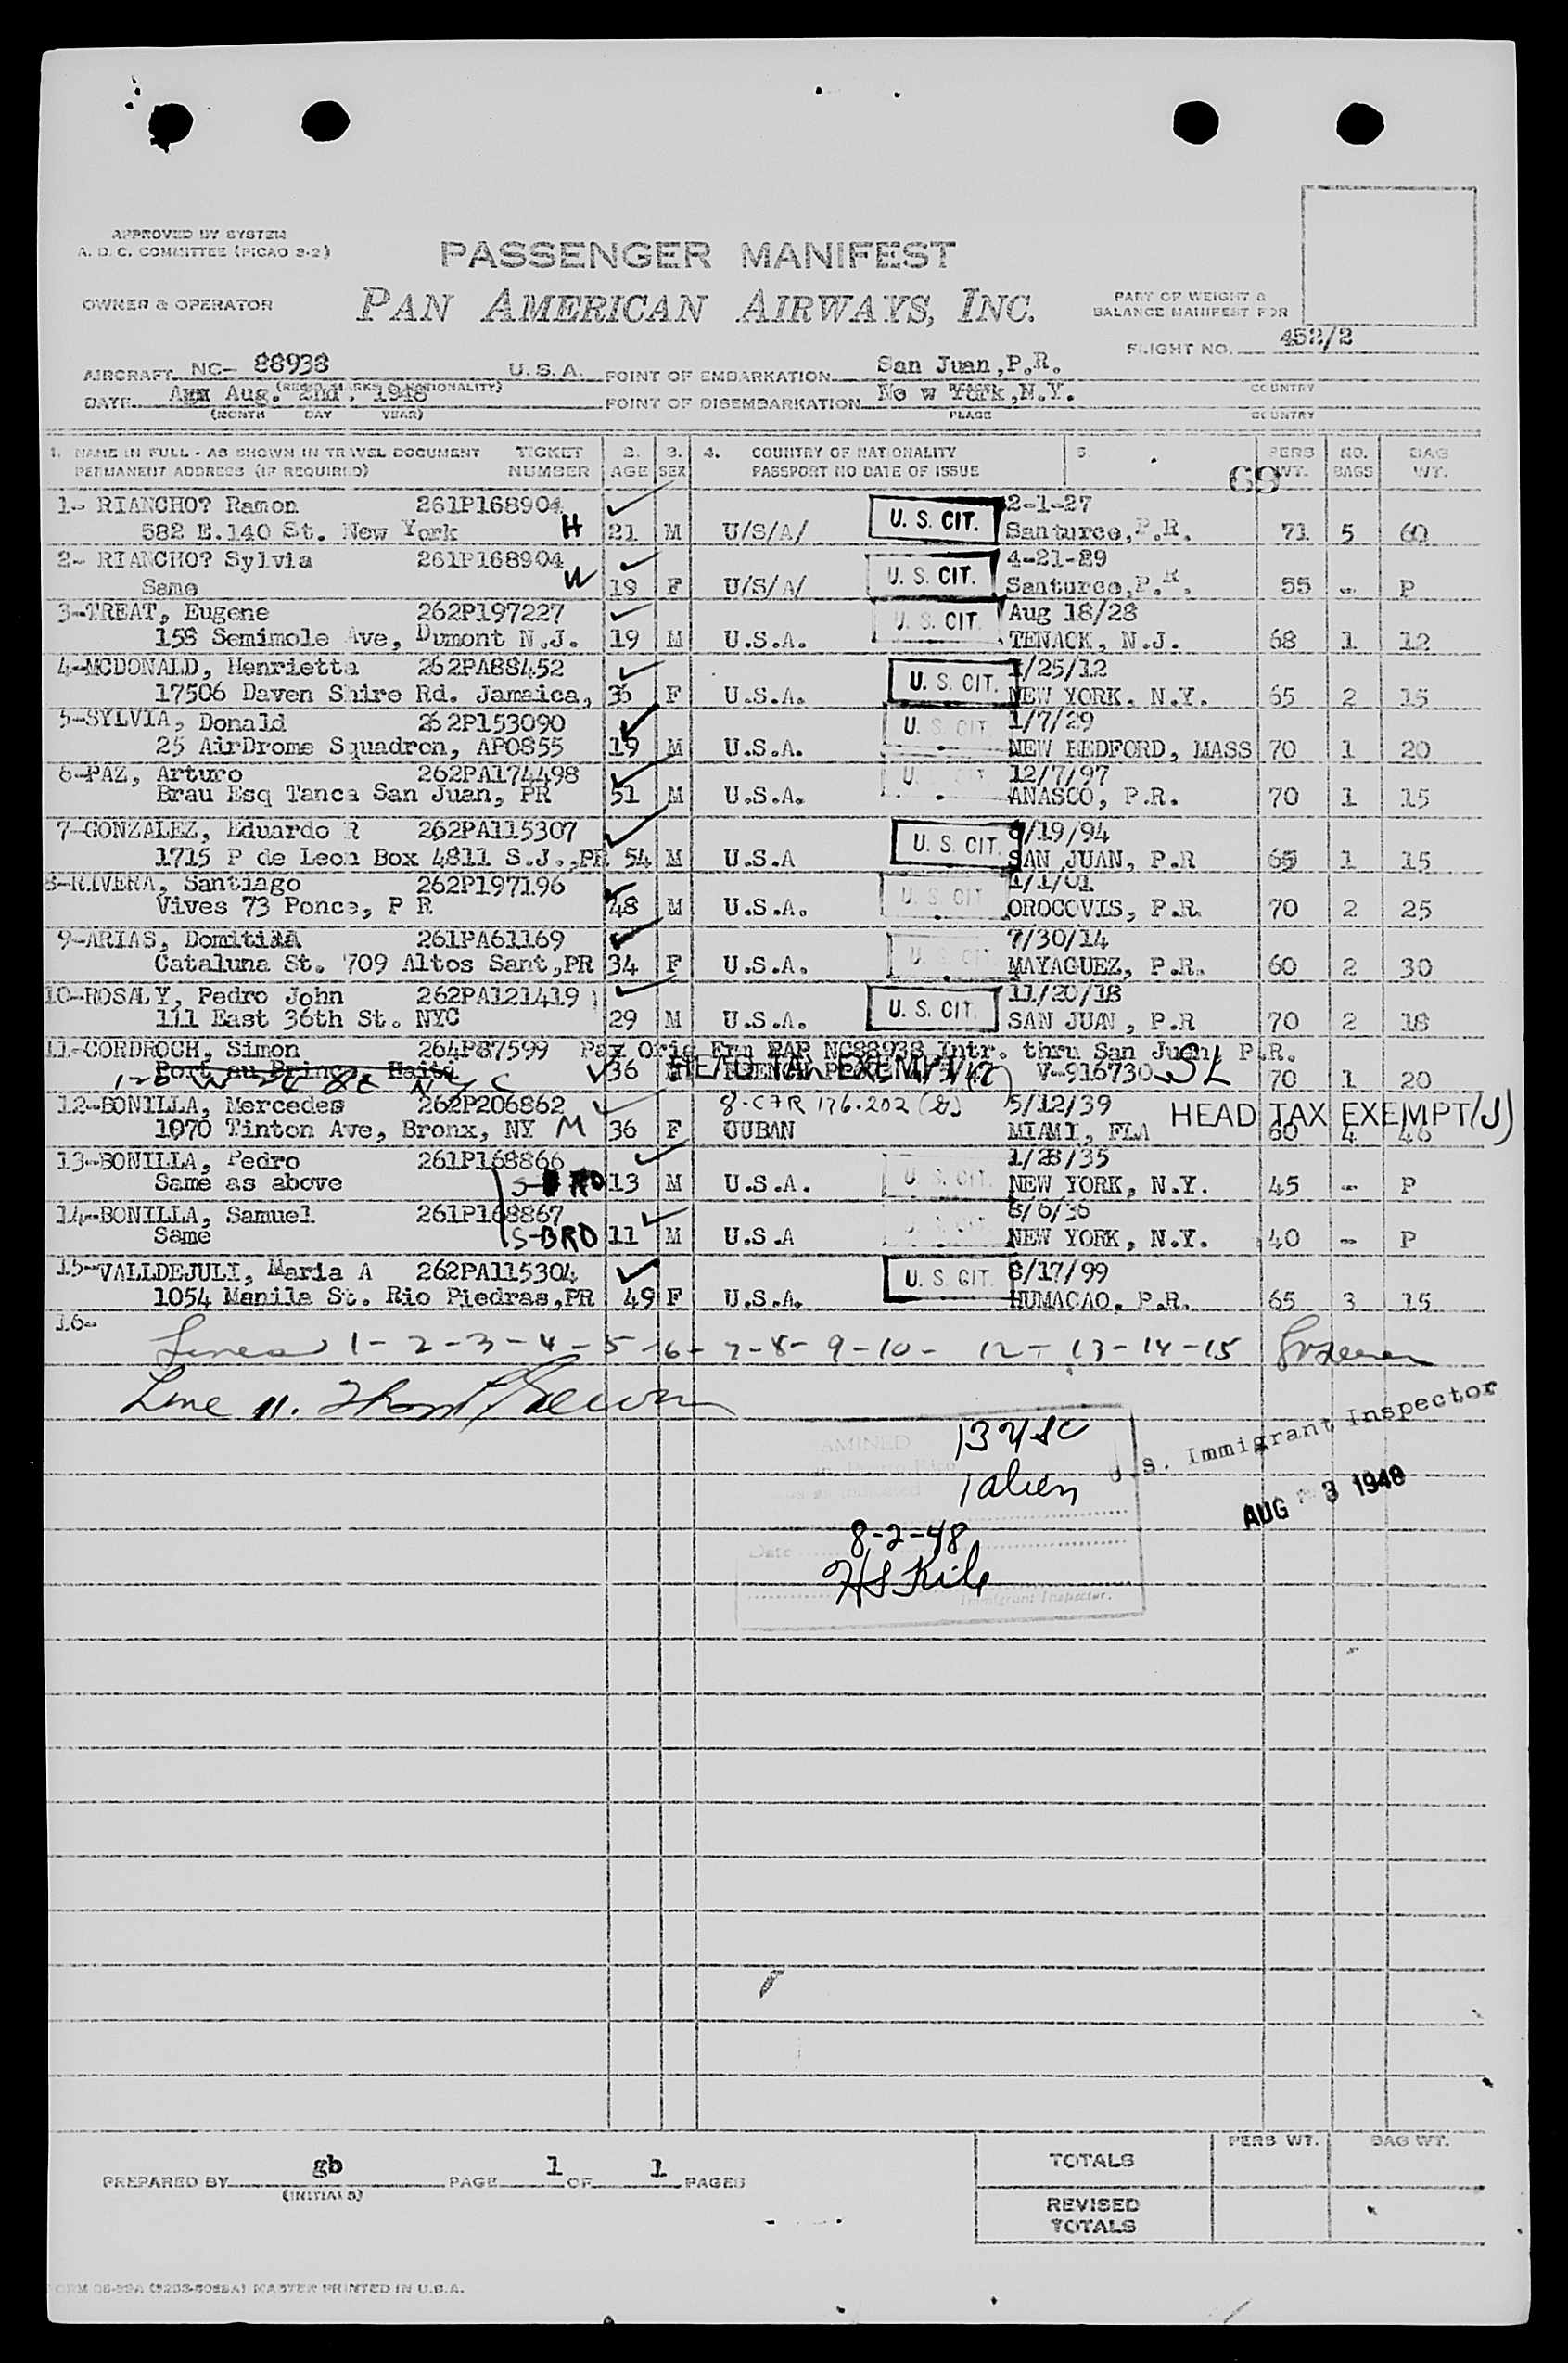 APPROVED BY SYSTEM
A. D. C. COMMITTEE (PICAO 2-2)
PASSENGER MANIFEST
OWNER & OPERATOR
PAN AMERICAN AIRWAYS, INC.
PART OF WEIGHT &
BALANCE MANIFEST FOR
FLIGHT NO. 452/2
AIRCRAFT NC- 88938 U.S.A. POINT OF EMBARKATION San Juan,P.R.
(REGIS. MARKS & NATIONALITY) PLACE COUNTRY
DATE Aug. 2nd. 1948 POINT OF DISEMBARKATION Ne w York,N.Y.
(MONTH DAY YEAR) PLACE COUNTRY
1. NAME IN FULL - AS SHOWN IN TRAVEL DOCUMENT TICKET 2. 3. 4. COUNTRY OF NATIONALITY 5. PERS NO. BAG
PERMANENT ADDRESS (IF REQUIRED) NUMBER AGE SEX PASSPORT NO DATE OF ISSUE WT. BAGS WT.
69
1- RIANCHO? Ramon 261P168904 2-1-27
582 E.140 St. New York H 21 M U/S/A/ U. S. CIT. Santurce,P.R. 71 5 60
2- RIANCHO? Sylvia 261P168904 4-21-29
Same W 19 F U/S/A/ U. S. CIT. Santurce,P.R. 55 - P
3-TREAT, Eugene 262P197227 Aug 18/28
158 Semimole Ave, Dumont N.J. 19 M U.S.A. U. S. CIT. TENACK, N.J. 68 1 12
4-MCDONALD, Henrietta 262PA88452 /25/12
17506 Daven Shire Rd. Jamaica, 36 F U.S.A. U. S. CIT. NEW YORK, N.Y. 65 2 15
5-SYLVIA, Donald 262P153090 1/7/29
25 AirDrome Squadron, APO855 19 M U.S.A. U. S. CIT. NEW BEDFORD, MASS 70 1 20
6-PAZ, Arturo 262PA174498 12/7/97
Brau Esq Tanca San Juan, PR 51 M U.S.A. U. S. CIT. ANASCO, P.R. 70 1 15
7-GONZALEZ, Eduardo R 262PA115307 /19/94
1715 P de Leon Box 4811 S.J.,PR 54 M U.S.A U. S. CIT. SAN JUAN, P.R 65 1 15
8-RIVERA, Santiago 262P197196 1/1/01
Vives 73 Ponce, P R 48 M U.S.A. U. S. CIT. OROCOVIS, P.R. 70 2 25
9-ARIAS, Domitila 261PA61169 7/30/14
Cataluna St. 709 Altos Sant,PR 34 F U.S.A. U. S. CIT. MAYAGUEZ, P.R. 60 2 30
10-ROSALY, Pedro John 262PA121419 11/20/18
111 East 36th St. NYC 29 M U.S.A. U. S. CIT. SAN JUAN, P.R 70 2 18
11-CORDROCH, Simon 264P87599 Pax Orig Frm PAP NC88938 Intr. thru San Juan, P.R.
Port au Prince, Haiti 36 HEAD TAX EXEMPT V-916730 SL 70 1 20
N Y C
12-BONILLA, Mercedes 262P206862 8-CFR 176.202 5/12/39
1070 Tinton Ave, Bronx, NY M 36 F CUBAN MIAMI, FLA HEAD TAX EXEMPT (J) 60 4 46
13-BONILLA, Pedro 261P168866 1/28/35
Same as above 13 M U.S.A. U. S. CIT. NEW YORK, N.Y. 45 - P
14-BONILLA, Samuel 261P168867 8/6/36
Same S-BRO 11 M U.S.A NEW YORK, N.Y. 40 - P
15-VALLDEJULI, Maria A 262PA115304 8/17/99
1054 Manila St. Rio Piedras,PR 49 F U.S.A. U. S. CIT. HUMACAO, P.R. 65 3 15
16-
Lines 1-2-3-4-5-6-7-8-9-10- 12-13-14-15
Line 11.
U.S. Immigrant Inspector
AUG 3 1948
13 USC
1 alien
8-2-48
Date
Immigrant Inspector.
PREPARED BY gb PAGE 1 OF 1 PAGES
(INITIALS)
PERS WT. BAG WT.
TOTALS
REVISED
TOTALS
MASTER PRINTED IN U.S.A.